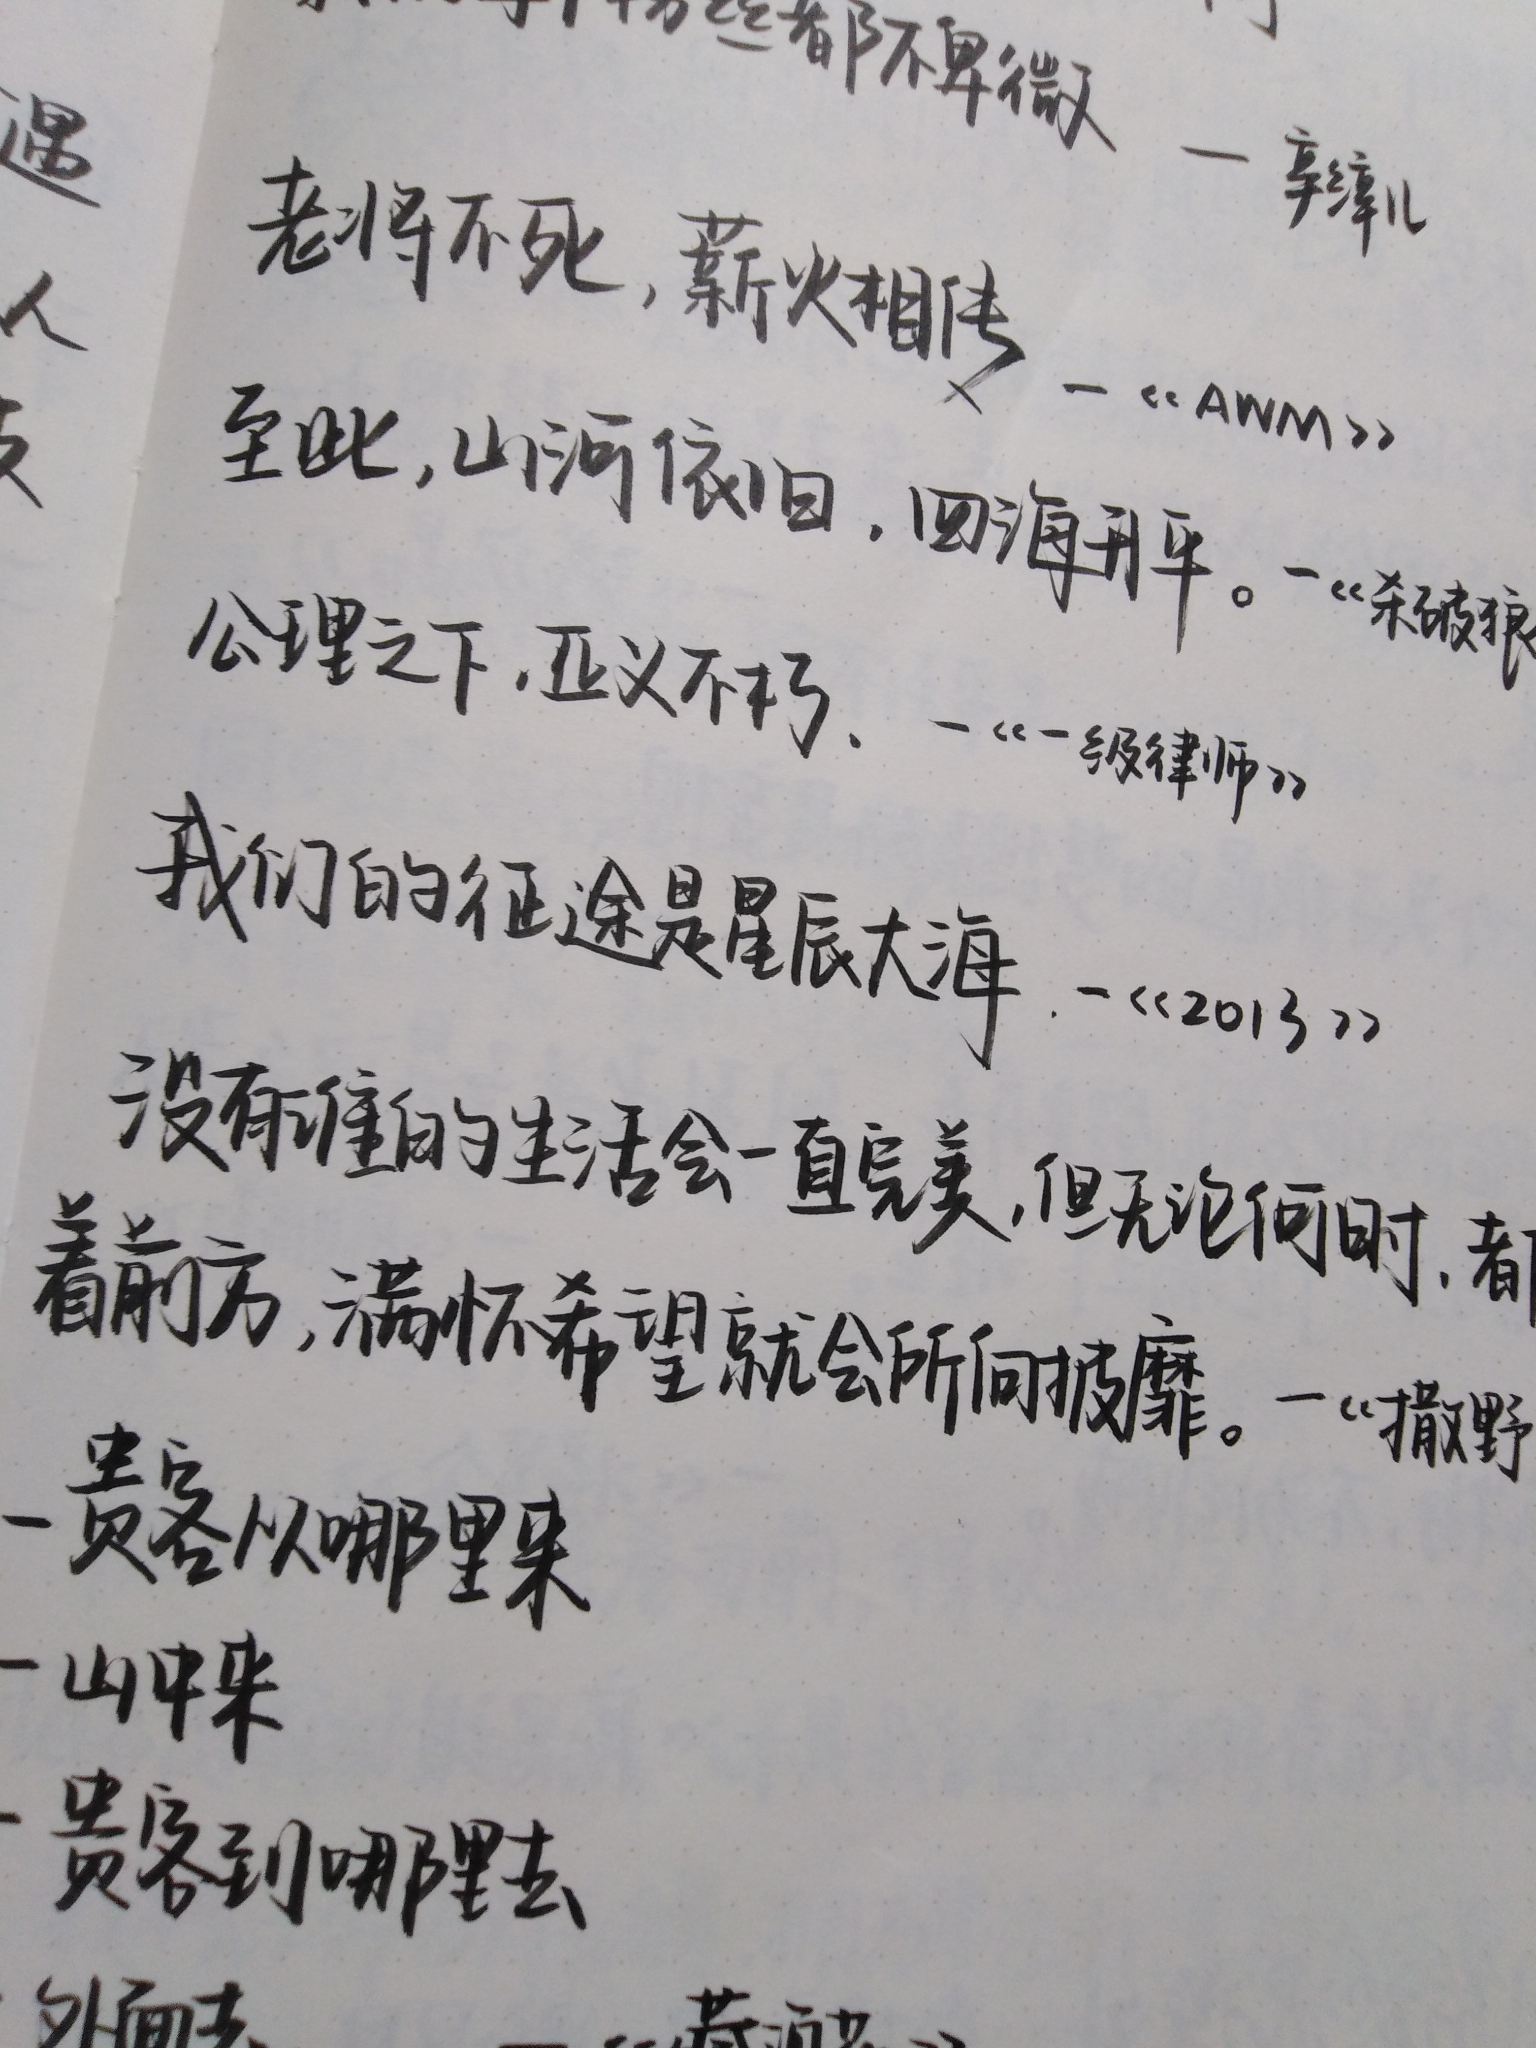 粉丝都不卑微 — 辛绰儿
老将不死，薪火相传 —《AWM》
至此，山河依旧，四海升平。—《杀破狼
公理之下，正义不朽。—《一级律师》
我们的征途是星辰大海 .—《2013》
没有谁的生活会一直完美，但无论何时，都
着前方，满怀希望就会所向披靡。—《撒野
—贵客从哪里来
—山中来
—贵客到哪里去
外面去 —《藏酒
遇
人